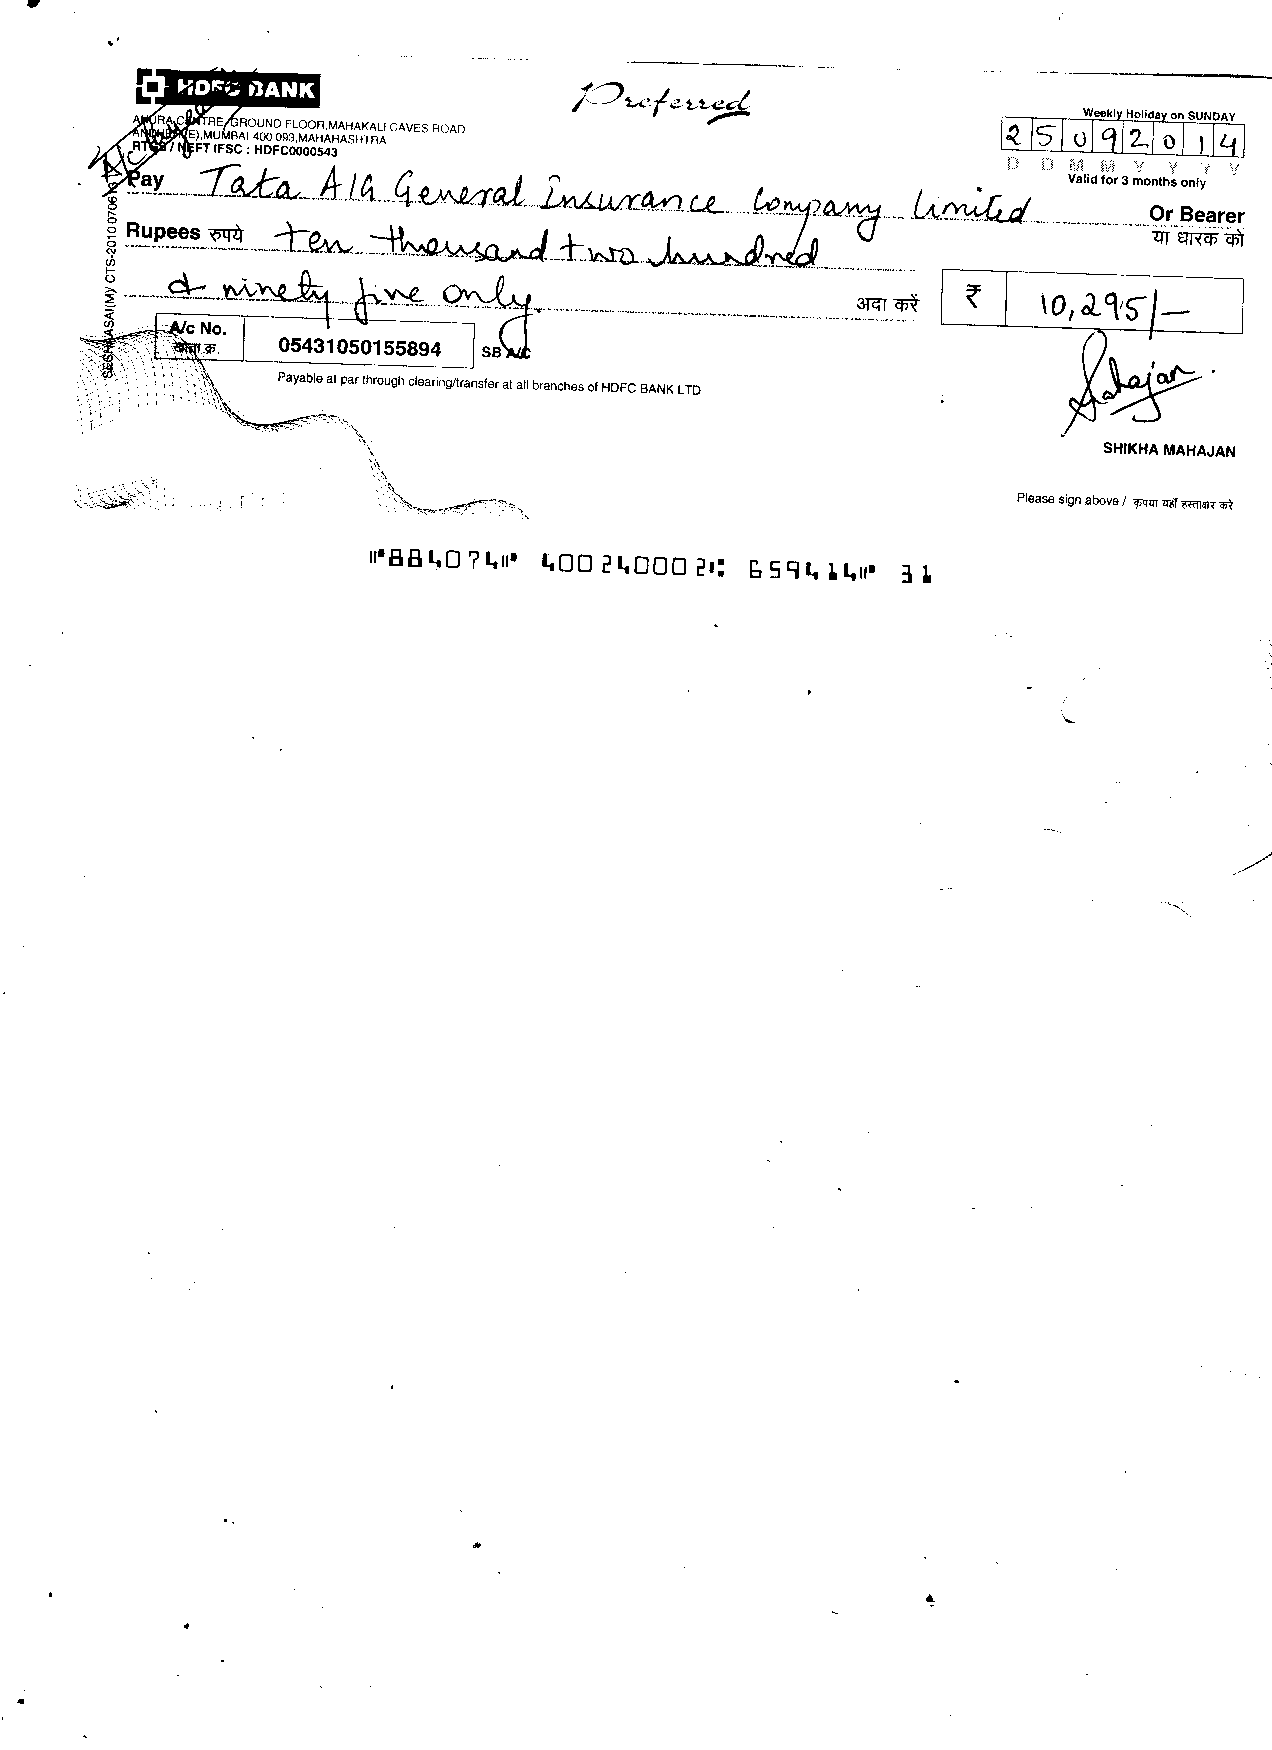 HDFC BANK
Preferred
AHURA CENTRE, GROUND FLOOR, MAHAKALI CAVES ROAD
ANDHERI (E), MUMBAI 400 093, MAHARASHTRA
RTGS / NEFT IFSC : HDFC0000543
Weekly Holiday on SUNDAY
25092014
D D M M Y Y Y Y
Valid for 3 months only
A/c Payee
Pay Tata AIG General Insurance Company Limited Or Bearer
या धारक को
Rupees रुपये ten thousand two hundred
& ninety five only. अदा करें ₹ 10,295/-
A/c No. 05431050155894 SB A/C
खाता क्र.
Payable at par through clearing/transfer at all branches of HDFC BANK LTD
SHIKHA MAHAJAN
Please sign above / कृपया यहाँ हस्ताक्षर करें
⑈884074⑈ 400240002⑆ 659414⑈ 31